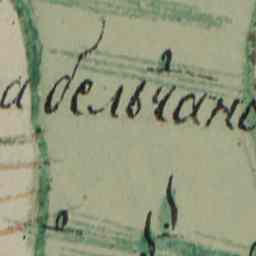 а бельчано